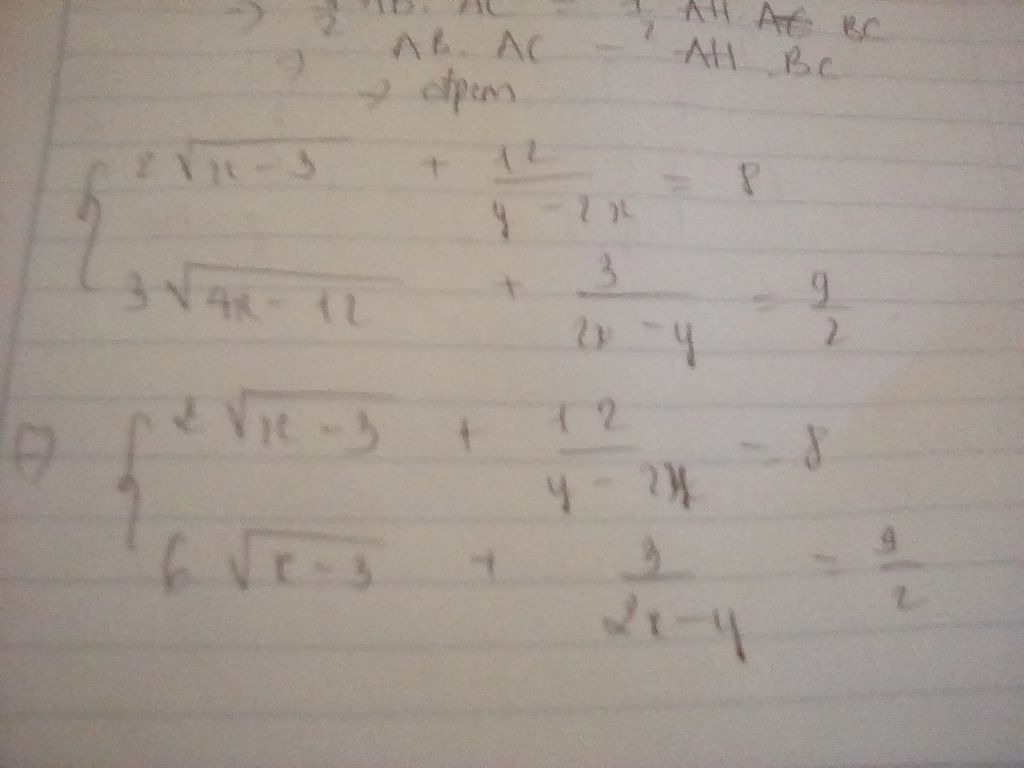 → 1/2 AB. AC = 1/2 AH. BC
→ AB. AC = AH. BC
→ đpcm
{ 2√(x-3) + 12/(y-2x) = 8
3√(4x-12) + 3/(2x-y) = 9/2
⇔ { 2√(x-3) + 12/(y-2x) = 8
6√(x-3) + 3/(2x-y) = 9/2